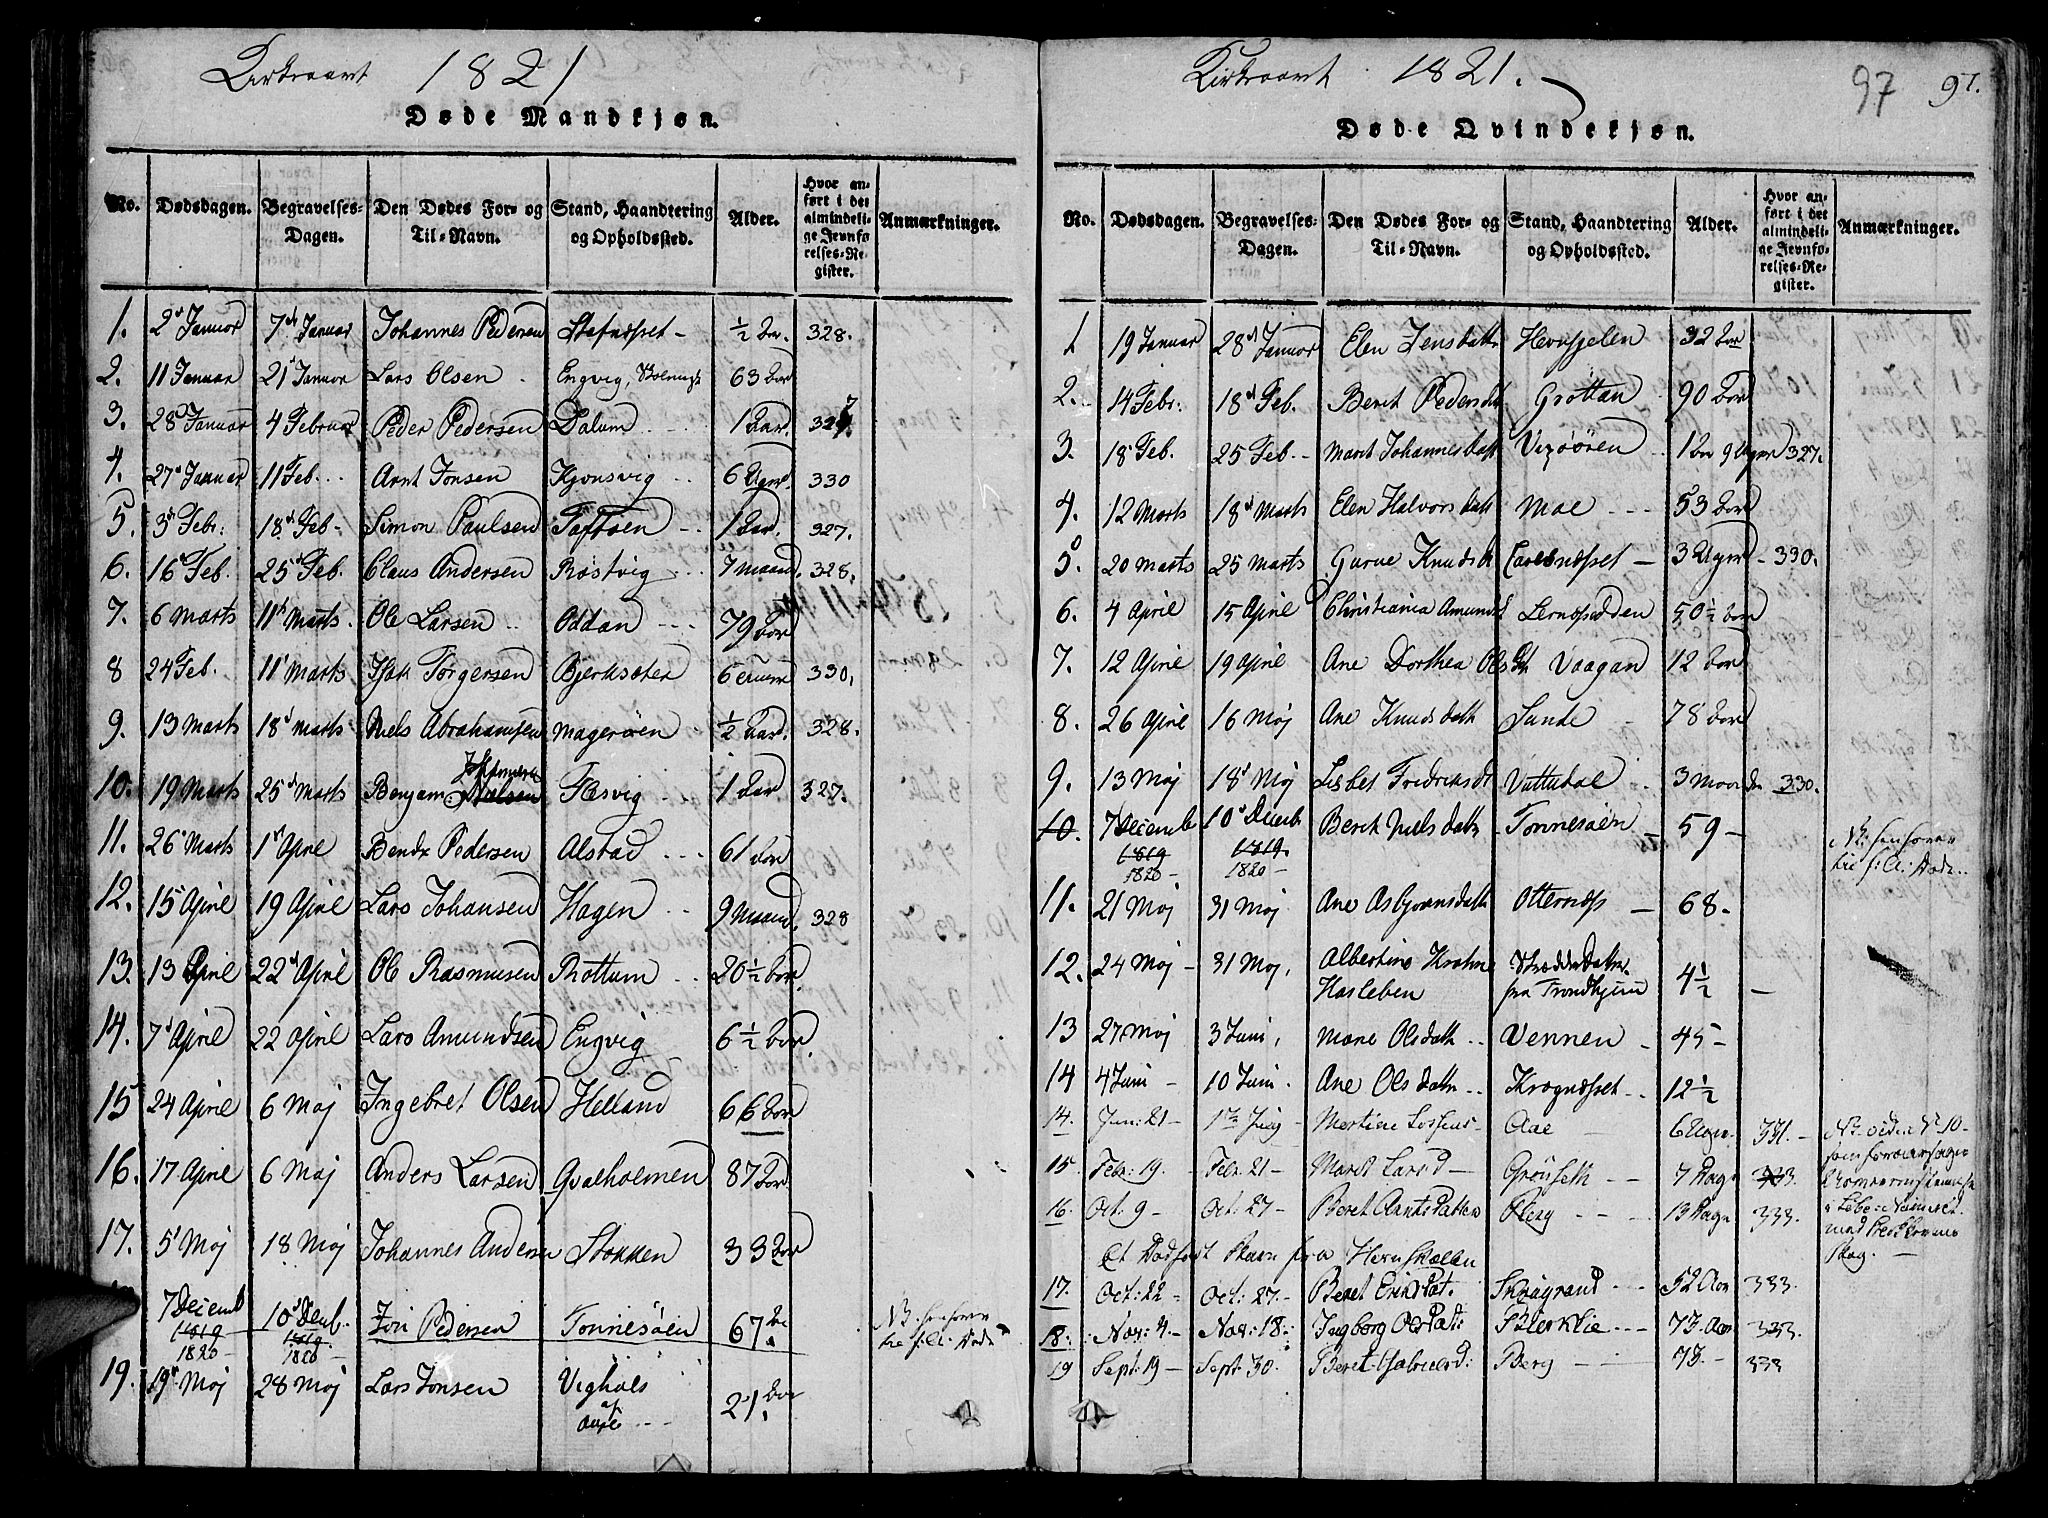 Kirkeaaret 1821
Døde Mandkjøn.
No. Dødsdagen. Begravelses-Dagen. Den Dødes For- og Til-Navn. Stand, Haandtering og Opholdssted. Alder. Hvor anført i det almindelige Jevnførelses-Register. Anmærkninger.
1. 2 Januar 7 Januar Johannes Pedersen Stafnæsset - ½ Aar. 328.
2. 11 Januar 21 Januar Lars Olsen Engvig, 63 Aar
3. 28 Januar 4 Februar Peder Pedersen Dalum 1 Aar. 327.
4. 27 Januar 11 Feb. Arnt Jonsen Kjønsvig 6 330
5. 3 Febr: 18 Feb - Simon Paulsen Taftøen 1 Aar. 327.
6. 16 Feb. 25 Feb. Claus Andersen Rostvig 7 Maand. 328.
7. 6 Marts 11 Marts. Ole Larsen Oddan 79 Aar
8 24 Feb. 11 Marts Isak Torgersen Bjerksæter 6 330,
9. 13 Marts 18 Marts Niels Abrahamsen Magerøen ½ Aar. 328.
10. 19 Marts 25 Marts Benjam Fæsvig 1 Aar 327.
11. 26 Marts 1 April Bendt Pedersen Alstad 61 Aar
12. 15 April 19 April Lars Johansen Hagen 9 Maand. 328
13. 13 April 22 April Ole Rasmusen Rottum 20½ Aar.
14. 7 April 22 April Lars Amundsen Engvig 6½ Aar.
15 24 April 6 Maj Ingebret Olsen Helland 66 Aar
16. 17 April 6 Maj Anders Larsen Qvalholmen 87 Aar.
17. 5 Maj 18 Maj Johannes Andersen Stokken 33 Aar
7 Decemb 1819 1820 - 10 Decemb. 1819 1820 - Pedersen Tonnesøen 67.
19. 19 Maj 28 Maj Lars Jonsen af Aure 21. Aar
Kirkeaaret 1821.
97 97.
Døde Qvindekjøn.
No. Dødsdagen. Begravelses-Dagen. Den Dødes For- og Til-Navn. Stand, Haandtering og Opholdssted. Alder. Hvor anført i det almindelige Jevnførelses-Register. Anmærkninger.
1 19 Januar 28 Januar Elen Jensdatt: 32 Aar
2. 14 Febr: 18 Feb. Beret Pedersdat Grøttan 90 Aar
3. 18 Feb. 25 Feb. - Marit Johannesdatt 1 Aar 9 Uger 327.
4. 12 Marts 18 Marts Elen Halvorsdatt Moe 53 Aar
5. 20 Marts 25 Marts Gurue Knudsd - 3 Uger - 330.
6. 4 April 15 April Christiania Amunds 50½ Aar
7. 12 April 19 April Ane Dorthea Olsdt Vaagan 12 Aar
8. 26 April 16 Maj Ane Knudsdatt Sunde 78 Aar
9. 13 Maj 18 Maj Lisbet Fredriksdt Vuttudal 3 Maaneder 330.
10. 7 Decemb 1819 1820 - 10 Decemb 1819. 1820 - Beret Nielsdatt Tonnesøen 59 -
11. 21 Maj 31 Maj Ane Asbjørnsdatt Otternæss - 68.
12. 24 Maj - 31 Maj. Albertine Krohne Hasleben fra Trondhjem 4½ -
13 27 Maj 3 Juni, Marie Olsdatt Vennen - 45 -
14 4 Juni - 10 Juni. Ane Olsdatt 12½
14. Jun: 21 - Martine Aae 6 Uger. 331. -
15. Febr: 19. - Febr. 21 - Marit Larsd - Grønseth 7 Dage 333.
16. Oct. 9 - Oct. 27 - Beret Arntsdatter Berg 13 Dage 333.
Et Dødfødt Barn fra
17. Oct: 22 - Oct: 27. - Beret Eriksdat. 52 Aar 333.
18. Nov: 4. - Nov: 18. Ingborg Olsdat: Bierklie 73. Aar 333.
19 Sept: 19 - Sept: 30. Beret Gabrielsd: Berg 73. - 333